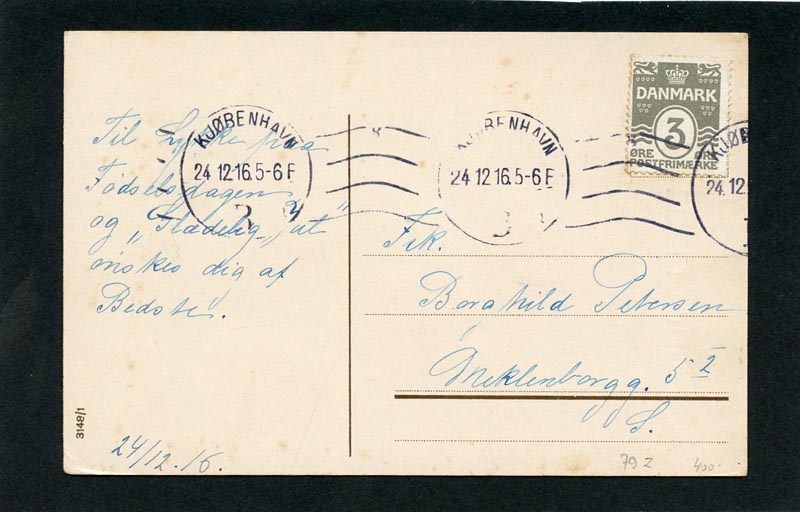 Til Lykke paa
Fødselsdagen
og „Glædelig Jul"
ønskes dig af
Bedste.
24/12.16.
3148/1
KJØBENHAVN
24.12.16.5-6 F
KJØBENHAVN
24.12.16.5-6 F
KJØB
24.12.
DANMARK
3
ØRE ØRE
POSTFRIMÆRKE
Frk.
Borghild Petersen
Meklenborgg. 5 2
S.
79 z
400